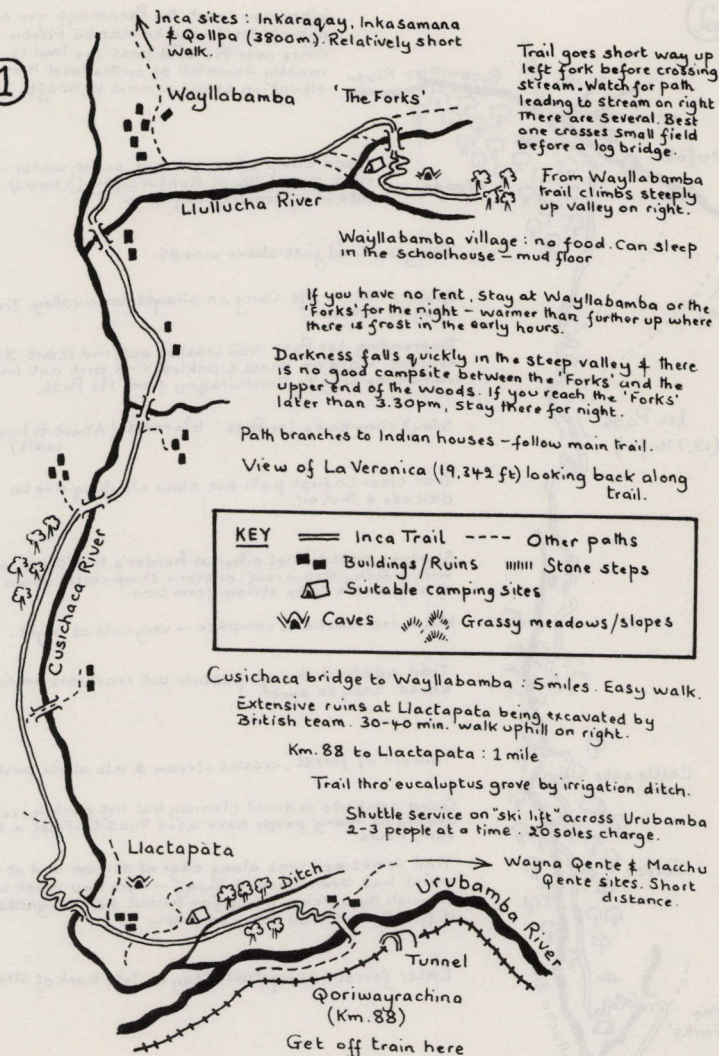 1
Inca sites : Inkaraqay, Inkasamana
& Qollpa (3800m). Relatively short
walk.
Trail goes short way up
left fork before crossing
stream. Watch for path
leading to stream on right
There are several. Best
one crosses small field
before a log bridge.
Wayllabamba
'The Forks'
From Wayllabamba
trail climbs steeply
up valley on right.
Llullucha River
Wayllabamba village : no food. Can sleep
in the schoolhouse – mud floor
If you have no tent, stay at Wayllabamba or the
'Forks' for the night – warmer than further up where
there is frost in the early hours.
Darkness falls quickly in the steep valley & there
is no good campsite between the 'Forks' and the
upper end of the woods. If you reach the 'Forks'
later than 3.30pm, stay there for night.
Path branches to Indian houses – follow main trail.
View of La Veronica (19,342 ft) looking back along
trail.
KEY
Inca Trail
Other paths
Buildings/Ruins
Stone steps
Suitable camping sites
Caves
Grassy meadows/slopes
Cusichaca River
Cusichaca bridge to Wayllabamba : 5 miles. Easy walk.
Extensive ruins at Llactapata being excavated by
British team. 30-40 min. walk uphill on right.
Km. 88 to Llactapata : 1 mile
Trail thro' eucaluptus grove by irrigation ditch.
Shuttle service on "ski lift" across Urubamba
2-3 people at a time. 20 soles charge.
Llactapata
Ditch
Wayna Qente & Macchu
Qente sites. Short
distance.
Urubamba River
Tunnel
Qoriwayrachina
(Km. 88)
Get off train here